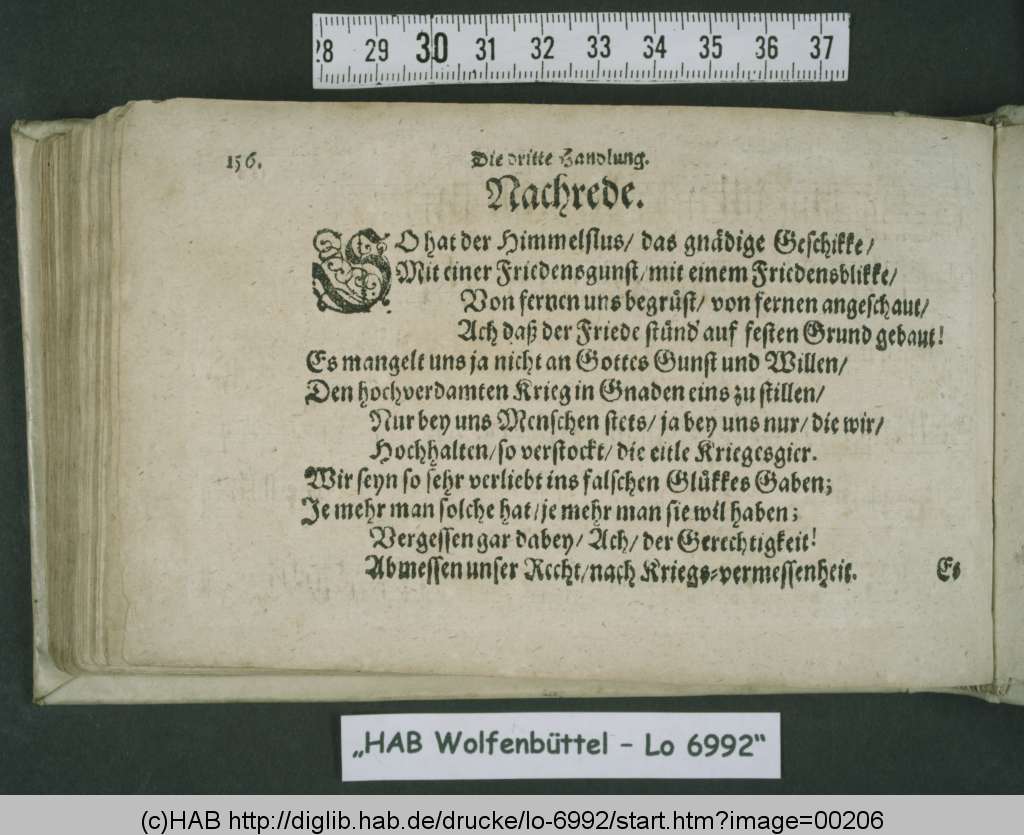 28 29 30 31 32 33 34 35 36 37
156.
Die dritte Handlung.
Nachrede.
SO hat der Himmelſlus/ das gnädige Geſchikke/
Mit einer Friedensgunſt/ mit einem Friedensblikke/
Von fernen uns begrüſt/ von fernen angeſchaut/
Ach daß der Friede ſtünd' auf feſten Grund gebaut!
Es mangelt uns ja nicht an Gottes Gunſt und Willen/
Den hochverdamten Krieg in Gnaden eins zu ſtillen/
Nur bey uns Menſchen ſtets/ ja bey uns nur/ die wir/
Hochhalten/ ſo verſtockt/ die eitle Kriegesgier.
Wir ſeyn ſo ſehr verliebt ins falſchen Glükkes Gaben;
Je mehr man ſolche hat/ je mehr man ſie wil haben;
Vergeſſen gar dabey/ Ach/ der Gerechtigkeit!
Abmeſſen unſer Recht/ nach Kriegs-vermeſſenheit.
Es
„HAB Wolfenbüttel – Lo 6992“
(c)HAB http://diglib.hab.de/drucke/lo-6992/start.htm?image=00206